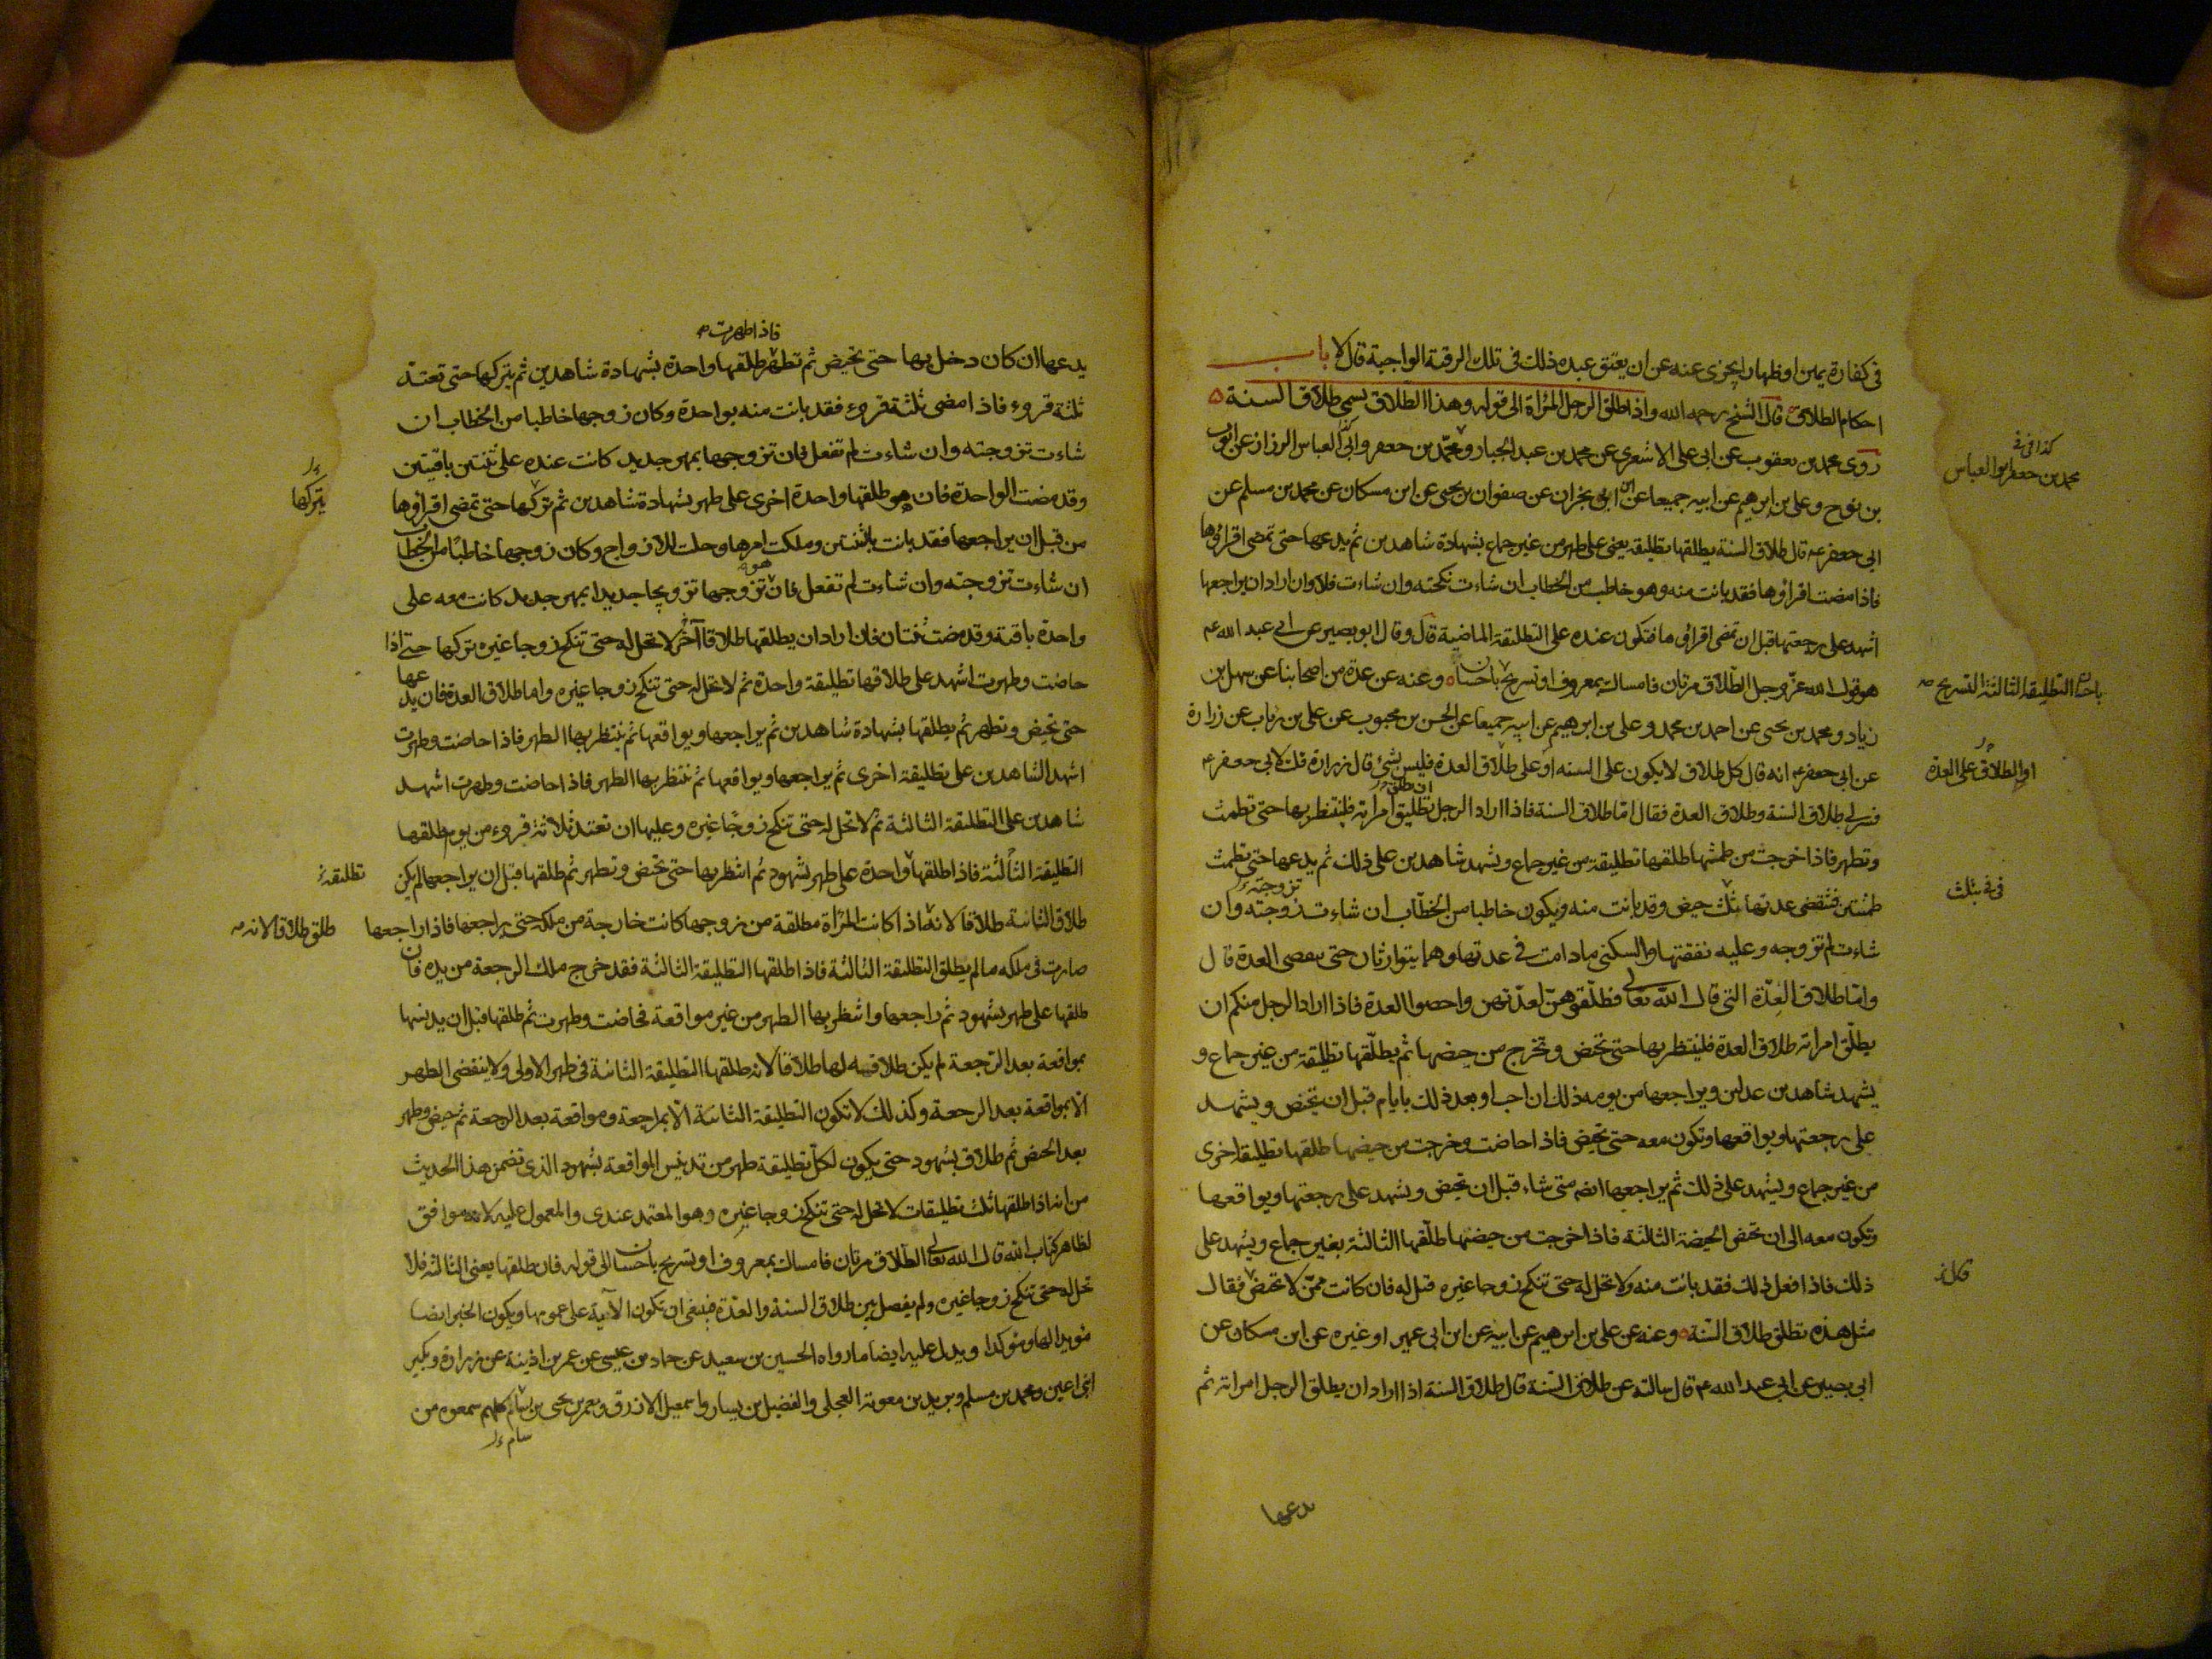 في كفارة يمين او ظهار ايجزي عنه عن ان يعتق عبده ذلك في تلك الرقبة الواجبة قال لا باب
احكام الطلاق قال الشيخ رحمه الله واذا طلق الرجل المرأة الى قوله وهذا الطلاق يسمى طلاق السنة
روى محمد بن يعقوب عن ابي علي الاشعري عن محمد بن عبد الجبار ومحمد بن جعفر وابي العباس الرزاز عن ايوب
كذا في في
محمد بن جعفر ابو العباس
بن نوح وعلي بن ابرهيم عن ابيه جميعا عن ابن ابي نجران عن صفوان بن يحيى عن ابن مسكان عن محمد بن مسلم عن
ابي جعفر ع قال طلاق السنة يطلقها تطليقة يعني على طهر من غير جماع بشهادة شاهدين ثم يدعها حتى تمضي اقراؤها
فاذا مضت اقراؤها فقد بانت منه وهو خاطب من الخطاب ان شاءت نكحته وان شاءت فلا وان اراد ان يراجعها
اشهد على رجعتها قبل ان تمضي اقراؤها فتكون عنده على التطليقة الماضية قال وقال ابو بصير عن ابي عبد الله ع
هو قول الله عز وجل الطلاق مرتان فامساك بمعروف او تسريح باحسان وعنه عن عدة من اصحابنا عن سهل بن
باحسان التطليقة الثالثة التسريح
زياد ومحمد بن يحيى عن احمد بن محمد وعلي بن ابرهيم عن ابيه جميعا عن الحسن بن محبوب عن علي بن رئاب عن زرارة
عن ابي جعفر ع انه قال كل طلاق لا يكون على السنه او على طلاق العدة فليس بشئ قال زرارة قلت لابي جعفر ع
او الطلاق على العدة
فسر لي طلاق السنة وطلاق العدة فقال اما طلاق السنة فاذا اراد الرجل تطليق امراته فلينتظر بها حتى تطمث
ان يطلق
وتطهر فاذا خرجت من طمثها طلقها تطليقة من غير جماع ويشهد شاهدين على ذلك ثم يدعها حتى تطمث
طمثتين فتنقضي عدتها بثلث حيض وقد بانت منه ويكون خاطبا من الخطاب ان شاءت تزوجته وان
تزوجته
في في بثلث
شاءت لم تزوجه وعليه نفقتها والسكنى مادامت في عدتها وهما يتوارثان حتى تنقضي العدة قال
واما طلاق العدة التي قال الله تعالى فطلقوهن لعدتهن واحصوا العدة فاذا اراد الرجل منكم ان
يطلق امراته طلاق العدة فلينتظر بها حتى تحيض وتخرج من حيضها ثم يطلقها تطليقة من غير جماع و
يشهد شاهدين عدلين ويراجعها من يومه ذلك ان احب او بعد ذلك بايام قبل ان تحيض ويشهد
على رجعتها ويواقعها وتكون معه حتى تحيض فاذا حاضت وخرجت من حيضها طلقها تطليقة اخرى
من غير جماع ويشهد على ذلك ثم يراجعها ايضا متى شاء قبل ان تحيض ويشهد على رجعتها ويواقعها
وتكون معه الى ان تحيض الحيضة الثالثة فاذا خرجت من حيضتها طلقها الثالثة بغير جماع ويشهد على
ذلك فاذا فعل ذلك فقد بانت منه ولا تحل له حتى تنكح زوجا غيره قيل له فان كانت ممن لا تحيض فقال
مثل هذه تطلق طلاق السنة وعنه عن علي بن ابرهيم عن ابيه عن ابن ابي عمير او غيره عن ابن مسكان عن
ابي بصير عن ابي عبد الله ع قال سالته عن طلاق السنة قال طلاق السنة اذا اراد ان يطلق الرجل امراته ثم
يدعها
فاذا طهرت
يدعها ان كان دخل بها حتى تحيض ثم تطهر طلقها واحدة بشهادة شاهدين ثم يتركها حتى تعتد
ثلثة قروء فاذا مضى ثلثة قروء فقد بانت منه بواحدة وكان زوجها خاطبا من الخطاب ان
شاءت تزوجته وان شاءت لم تفعل فان تزوجها بمهر جديد كانت عنده على ثنتين باقيتين
وقد مضت الواحدة فان هو طلقها واحدة اخرى على طهر بشهادة شاهدين ثم تركها حتى تمضي اقراؤها
يتركها
من قبل ان يراجعها فقد بانت باثنتين وملكت امرها وحلت للازواج وكان زوجها خاطبا من الخطاب
ان شاءت تزوجته وان شاءت لم تفعل فان هو تزوجها تزويجا جديدا بمهر جديد كانت معه على
واحدة باقية وقد مضت ثنتان فان اراد ان يطلقها طلاقا آخر لا تحل له حتى تنكح زوجا غيره تركها حتى اذا
حاضت وطهرت اشهد على طلاقها تطليقة واحدة ثم لا تحل له حتى تنكح زوجا غيره واما طلاق العدة فان يدعها
حتى تحيض وتطهر ثم يطلقها بشهادة شاهدين ثم يراجعها ويواقعها ثم ينتظر بها الطهر فاذا حاضت وطهرت
اشهد الشاهدين على تطليقة اخرى ثم يراجعها ويواقعها ثم ينتظر بها الطهر فاذا حاضت وطهرت اشهد
شاهدين على التطليقة الثالثة ثم لا تحل له حتى تنكح زوجا غيره وعليها ان تعتد ثلاثة قروء من يوم طلقها
التطليقة الثالثة فاذا طلقها واحدة على طهر بشهود ثم انتظر بها حتى تحيض وتطهر ثم طلقها قبل ان يراجعها لم يكن
تطليقة
طلاق الثانية طلاقا لانه اذا كانت المرأة مطلقة من زوجها كانت خارجة من ملكه حتى يراجعها فاذا راجعها
طلق طلاقا لانه
صارت في ملكه ما لم يطلق التطليقة الثالثة فاذا طلقها التطليقة الثالثة فقد خرج ملك الرجعة من يده فان
طلقها على طهر بشهود ثم راجعها وانتظر بها الطهر من غير مواقعة فحاضت وطهرت ثم طلقها قبل ان يدنسها
بمواقعة بعد الرجعة لم يكن طلاقه لها طلاقا لانه طلقها التطليقة الثانية في طهر الاولى ولا ينقضي الطهر
الا بمواقعة بعد الرجعة وكذلك لا تكون التطليقة الثانية الا بمراجعة ومواقعة بعد الرجعة ثم حيض وطهر
بعد الحيض ثم طلاق بشهود حتى يكون لكل تطليقة طهر من تدنيس المواقعة بشهود الذي تضمن هذا الحديث
من انه اذا طلقها ثلث تطليقات لا تحل له حتى تنكح زوجا غيره وهو المعتمد عندي والمعمول عليه لانه موافق
لظاهر كتاب الله قال الله تعالى الطلاق مرتان فامساك بمعروف او تسريح باحسان الى قوله فان طلقها يعني الثالثة فلا
تحل له حتى تنكح زوجا غيره ولم يفصل بين طلاق السنة والعدة فينبغي ان تكون الآية على عمومها ويكون الخبر ايضا
مؤيدا لها ومؤكدا ويدل عليه ايضا ما رواه الحسين بن سعيد عن حماد بن عيسى عن عمر بن اذينة عن زرارة وبكير
ابني اعين ومحمد بن مسلم وبريد بن معوية العجلي والفضيل بن يسار واسمعيل الازرق ومعمر بن يحيى بن بسام كلهم سمعوه من
سام